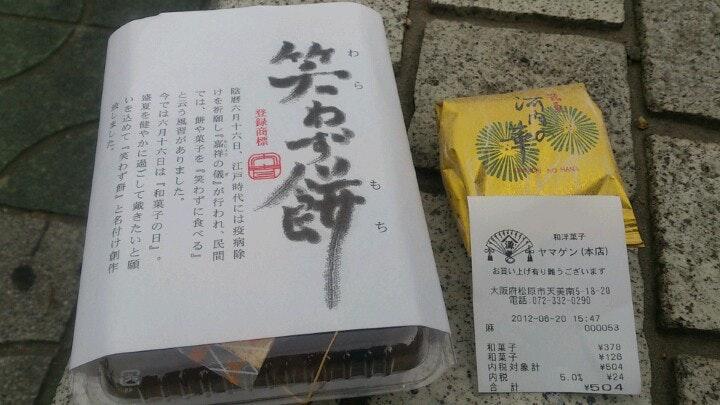 笑わず餅
わら
もち
登録商標
陰暦六月十六日、江戸時代には疫病除
けを祈願し『嘉祥の儀』が行われ、民間
では、餅や菓子を『笑わずに食べる』
と云う風習がありました。
今では六月十六日は『和菓子の日』。
盛夏を健やかに過ごして戴きたいと願
いを込めて『笑わず餅』と名付け創作
致しました。
河内の華
NO HANA
和洋菓子
ヤマゲン(本店)
お買い上げ有り難うございます
大阪府松原市天美南5-18-20
電話.072-332-0290
2012-06-20 15:47
麻 000053
和菓子 ¥378
和菓子 ¥126
内税対象計 ¥504
内税 5.0% ¥24
合計 ¥504